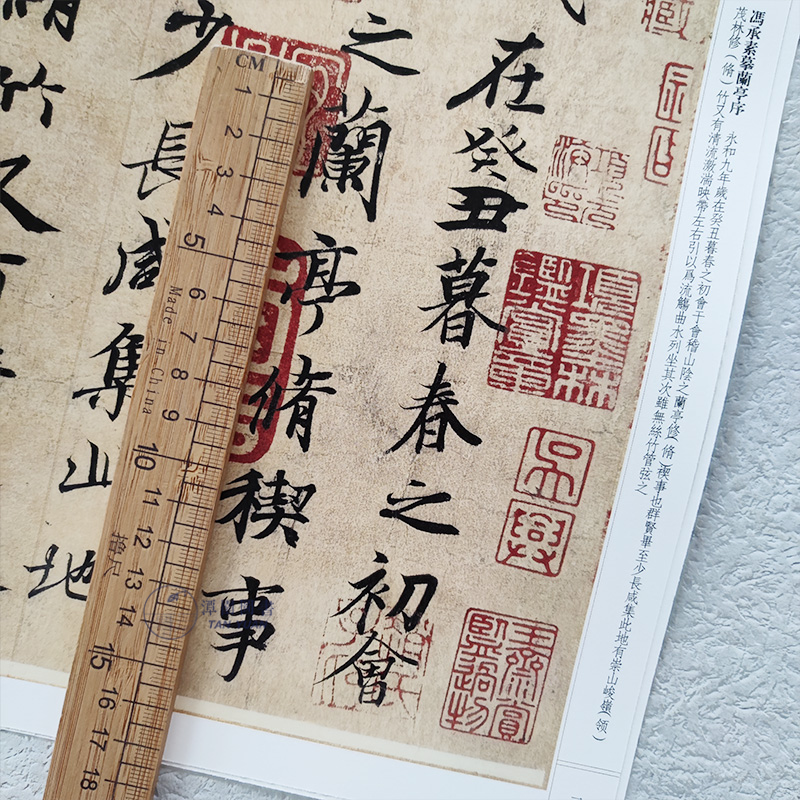 馮承素摹蘭亭序 永和九年歲在癸丑暮春之初會于會稽山陰之蘭亭修(脩)禊事也群賢畢至少長咸集此地有崇山峻嶺(领)
茂林修(脩)竹又有清流激湍映帶左右引以爲流觴曲水列坐其次雖無絲竹管弦之
在癸丑暮春之初會
之蘭亭脩禊事
少長咸集此地
竹又
項墨林鑑賞章
吳興
王濟賞監過物
CM
1 2 3 4 5 6 7 8 9 10 11 12 13 14 15 16 17 18
Made in China